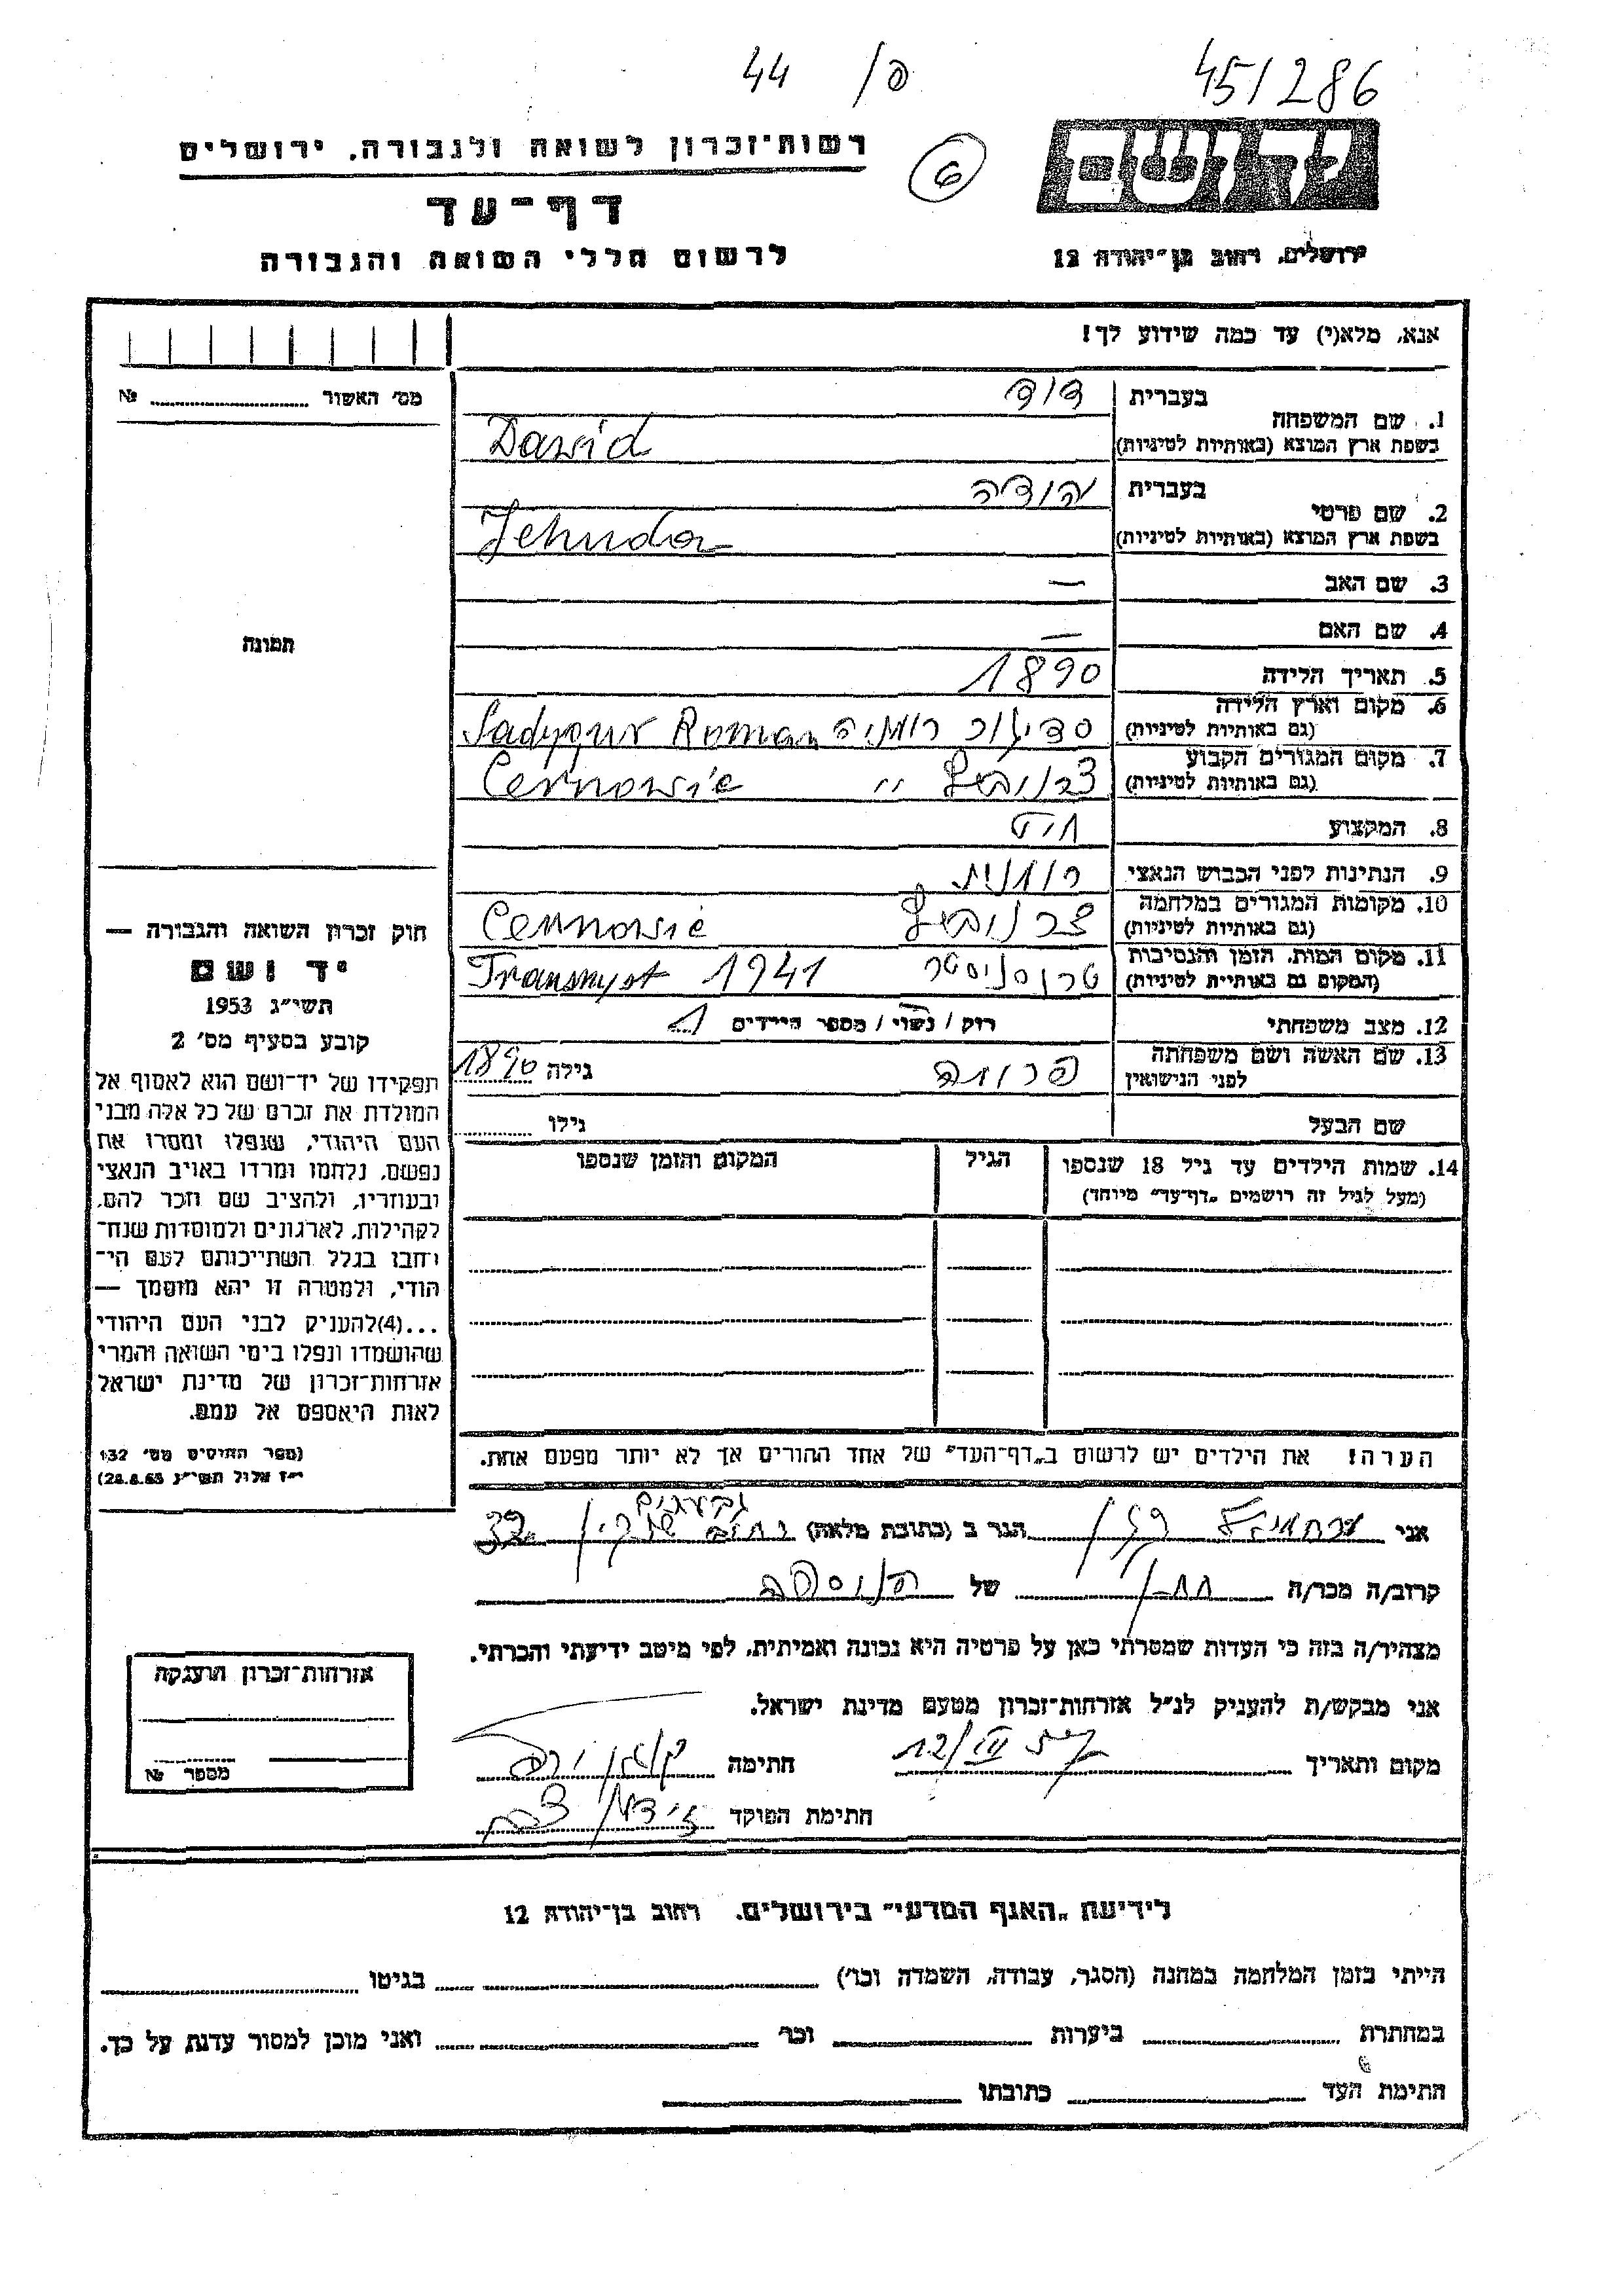 44 פ/ 45/286
יד ושם
רשות־זכרון לשואה ולגבורה, ירושלים
6
דף־עד
לרשום חללי השואה והגבורה
ירושלים, רחוב בן־יהודה 12
אנא, מלא(י) עד כמה שידוע לך!
מס' האשור №
1. שם המשפחה
בעברית דוד
בשפת ארץ המוצא (באותיות לטיניות) Dawid
2. שם פרטי
בעברית יהודה
בשפת ארץ המוצא (באותיות לטיניות) Jehuda
3. שם האב —
4. שם האם —
תמונה
5. תאריך הלידה 1890
6. מקום וארץ הלידה
(גם באותיות לטיניות) סדיגור רומניה Sadygur Roman
7. מקום המגורים הקבוע
(גם באותיות לטיניות) צרנוביץ " Cernowic
8. המקצוע חיט
9. הנתינות לפני הכבוש הנאצי רומנית
10. מקומות המגורים במלחמה
(גם באותיות לטיניות) צרנוביץ Cernowic
11. מקום המות, הזמן והנסיבות
(המקום גם באותיות לטיניות) טרנסניסטר Transnyst 1941
12. מצב משפחתי רוק / נשוי / מספר הילדים 1
13. שם האשה ושם משפחתה
לפני הנישואין פרומה גילה 1890
שם הבעל גילו
14. שמות הילדים עד גיל 18 שנספו הגיל המקום והזמן שנספו
(מעל לגיל זה רושמים „דף־עד" מיוחד)
חוק זכרון השואה והגבורה —
יד ושם
תשי״ג 1953
קובע בסעיף מס' 2
תפקידו של יד־ושם הוא לאסוף אל
המולדת את זכרם של כל אלה מבני
העם היהודי, שנפלו ומסרו את
נפשם, נלחמו ומרדו באויב הנאצי
ובעוזריו, ולהציב שם וזכר להם,
לקהילות, לארגונים ולמוסדות שנח־
רחבו בגלל השתייכותם לעם הי־
הודי, ולמטרה זו יהא מוסמך —
...(4)להעניק לבני העם היהודי
שהושמדו ונפלו בימי השואה והמרי
אזרחות־זכרון של מדינת ישראל
לאות היאספם אל עמם.
(ספר החוקים מס' 132
י״ז אלול תשי״ג 28.8.53)
הערה! את הילדים יש לרשום ב„דף־העד" של אחד ההורים אך לא יותר מפעם אחת.
גבעתיים
אני הגר ב (כתובת מלאה) רחוב 32
קרוב/ה מכר/ה של המנוסה
מצהיר/ה בזה כי העדות שמסרתי כאן על פרטיה היא נכונה ואמיתית, לפי מיטב ידיעתי והכרתי.
אני מבקש/ת להעניק לנ״ל אזרחות־זכרון מטעם מדינת ישראל.
מקום ותאריך 12/III 57 חתימה
חתימת הפוקד
אזרחות־זכרון הוענקה
מספר №
לידיעת „האגף המדעי" בירושלים, רחוב בן־יהודה 12
הייתי בזמן המלחמה במחנה (הסגר, עבודה, השמדה וכו') בגיטו
במחתרת ביערות וכו' ואני מוכן למסור עדות על כך.
חתימת העד כתובתו